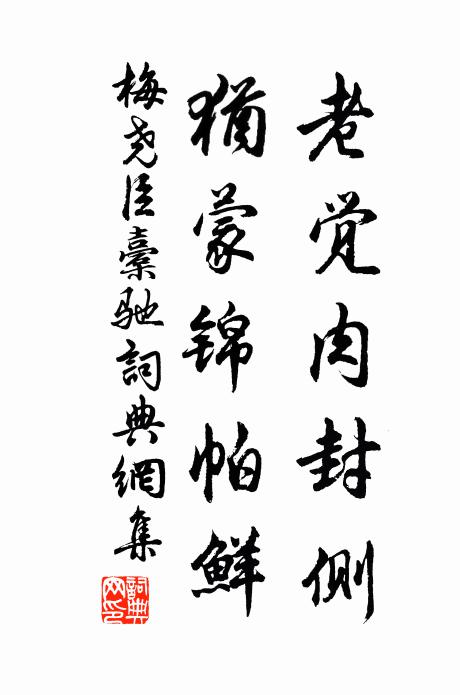 老觉肉封侧
犹蒙锦帕鲜
梅尧臣橐驰詞典網集
詞典网印